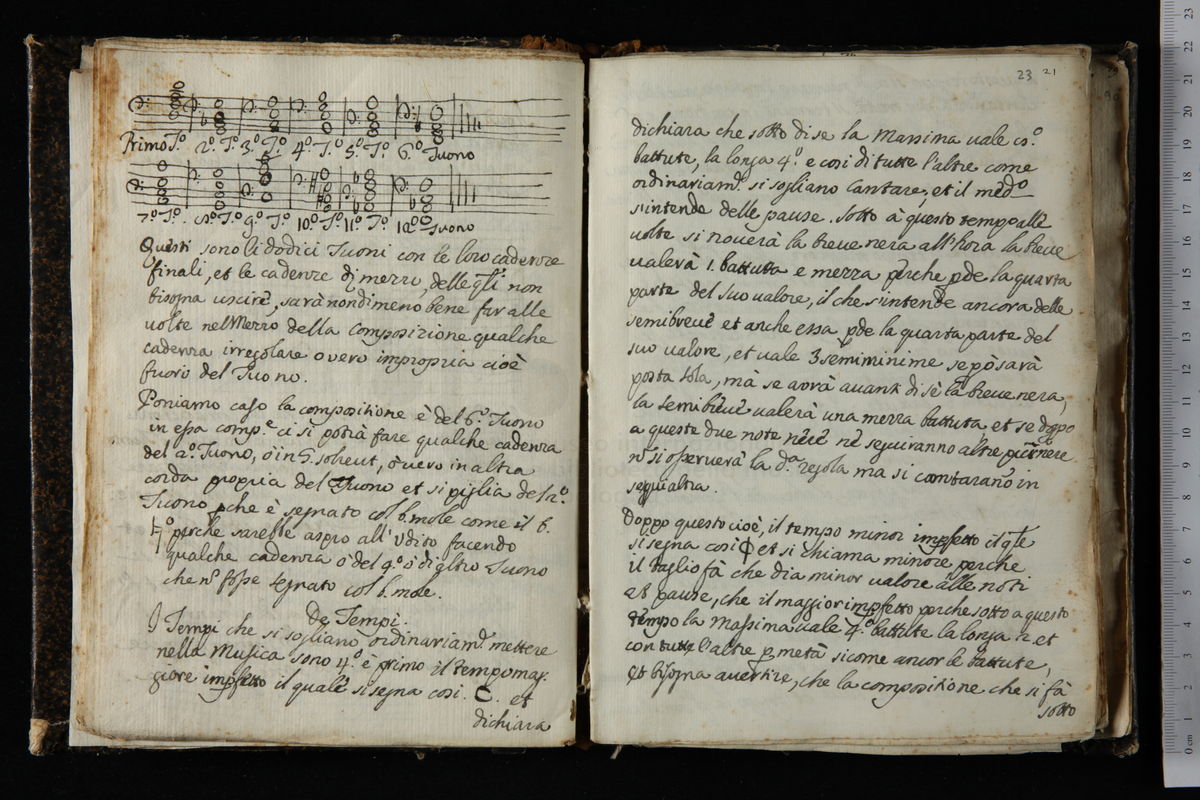 Primo T.º 2.º T.º 3.º T.º 4.º T.º 5.º T.º 6.º Tuono
7.º T.º 8.º T.º 9.º T.º 10.º T.º 11.º T.º 12.º Tuono
Questi sono li dodici Tuoni con le loro cadenze
finali, et le cadenze di mezzo, delle qli non
bisogna uscire, sarà nondimeno bene far alle
volte nel Mezzo della Compositione qualche
cadenza irregolare overo impropria cioè
fuori del Tuono.
Poniamo caso la compositione è del 6.º Tuono
in essa comp.e ci si potrà fare qualche cadenza
del 2.º Tuono, ò in G. solreut, ò uero in altra
corda propria del Tuono et si piglia del 2.º
Tuono, pche è segnato col b. mole come il 6.º
perche sarebbe aspro all' Vdito facendo
qualche cadenza ò del 9.º ò di altro Tuono
che nõ fosse segnato col b. mole.
De Tempi.
I Tempi che si sogliano ordinariam.e mettere
nella Musica sono 4.º è primo il tempo mag=
giore impfetto il quale si segna cosi. C. et
dichiara
23 21
dichiara che sotto di se la Massima uale 8.º
battute, la longa 4.º e cosi di tutte l'altre come
ordinariam.e si sogliano Cantare, et il med.o
s'intende delle pause. Sotto à questo tempo alle
uolte si trouerà la breue nera all'hora la breue
ualerà 1. battuta e mezza pche pde la quarta
parte del suo ualore, il che s'intende ancora delle
semibreue et anche essa pde la quarta parte del
suo ualore, et uale 3 semiminime se pò sarà
posta sola, mà se avrà auanti di sè la breue nera,
la semibreue ualerà una mezza battuta et se doppo
a queste due note nere nõ seguiranno altre più nere
nõ si osseruerà la d.a regola ma si contarano in
sequialtra.
Doppo questo cioè, il tempo minor impfetto il qle
si segna così ¢ et si chiama minore perche
il taglio fà che dia minor valore alle noti
et pause, che il maggior impfetto perche sotto a questo
tempo la Massima uale 4.º battute la longa 2 et
con tutte l'altre p metà sicome ancor le battute,
Et bisogna auertire, che la compositione che si fà
sotto